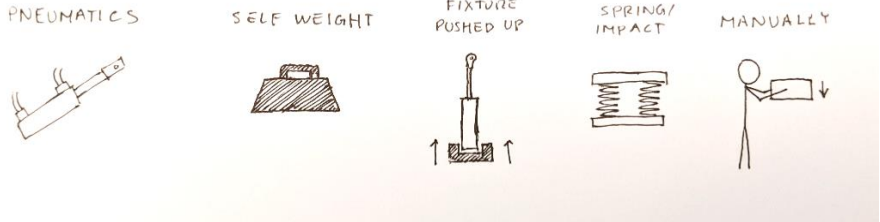 PNEUMATICS
SELF WEIGHT
FIXTURE
PUSHED UP
SPRING/
IMPACT
MANUALLY